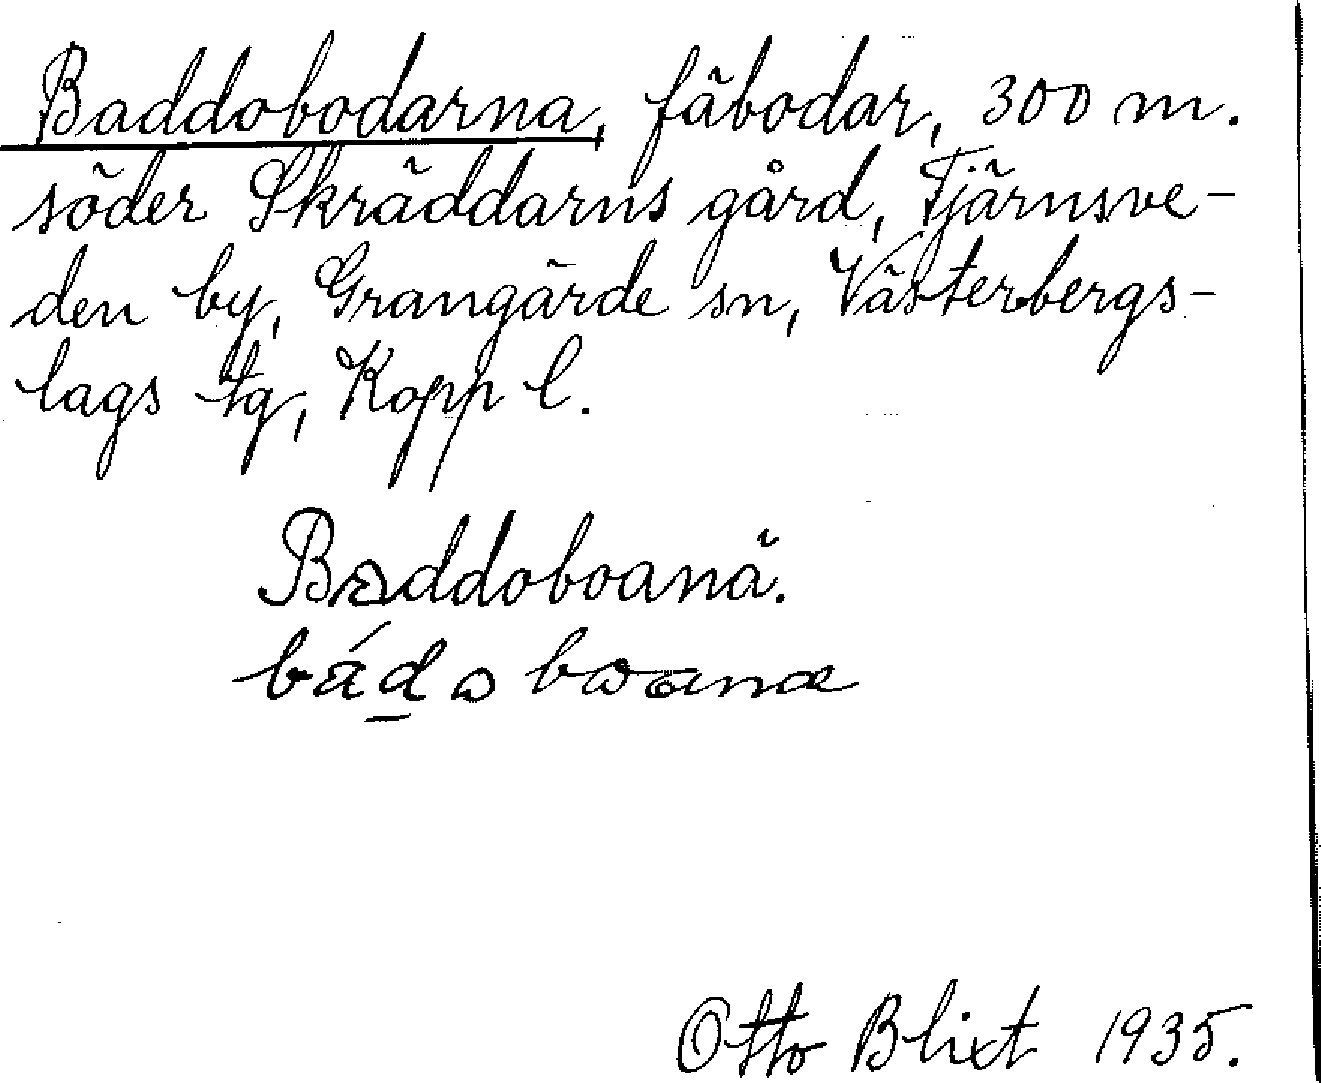 Baddobodarna, fäbodar, 300 m.
söder Skräddarns gård, Tjärnsve-
den by, Grangärde sn, Västerbergs-
lags tg, Kopp l.
Baddoboanä.
bádo boanæ
Otto Blixt 1935.